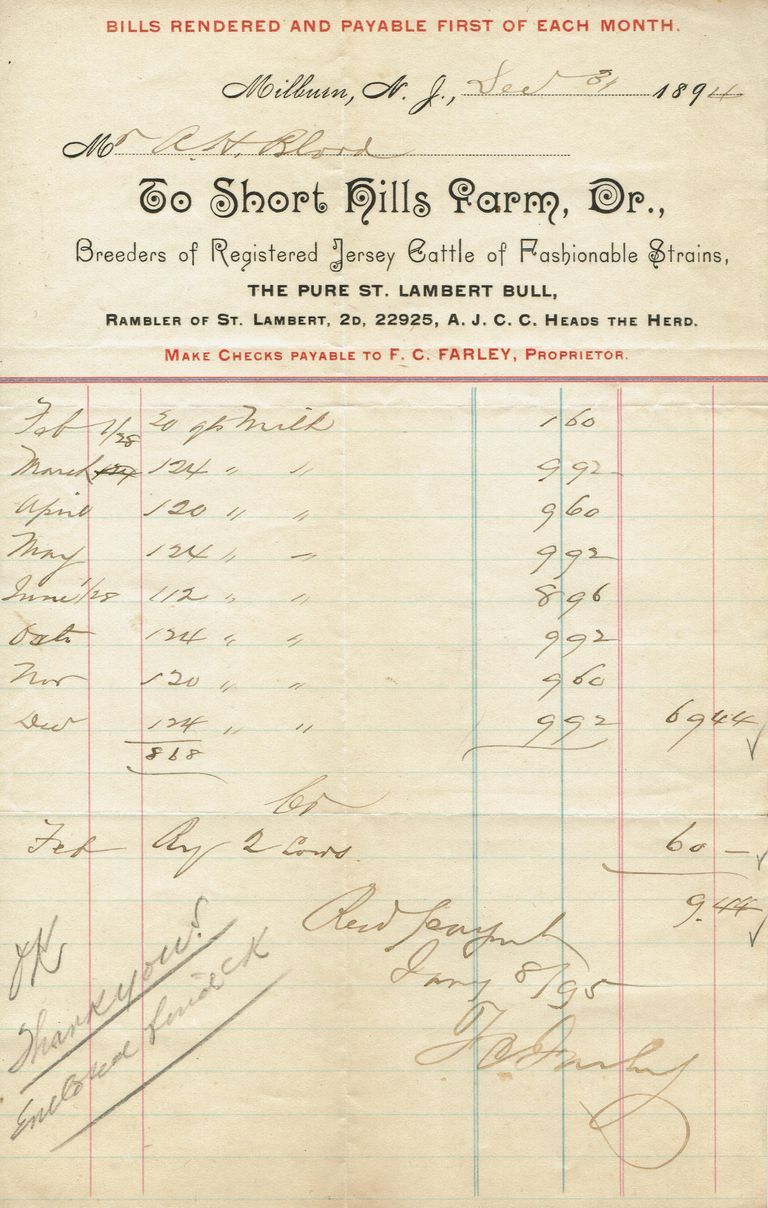 BILLS RENDERED AND PAYABLE FIRST OF EACH MONTH.
Milburn, N. J., Dec 31 1894
Mr A. H. Blood
To Short Hills Farm, Dr.,
Breeders of Registered Jersey Cattle of Fashionable Strains,
THE PURE ST. LAMBERT BULL,
RAMBLER OF ST. LAMBERT, 2D, 22925, A. J. C. C. HEADS THE HERD.
MAKE CHECKS PAYABLE TO F. C. FARLEY, PROPRIETOR.
Feb /28 20 qts Milk 1 60
March 124 " " 9 92
April 120 " " 9 60
May 124 " " 9 92
June 1/28 112 " " 8 96
Oct 124 " " 9 92
Nov 120 " " 9 60
Dec 124 " " 9 92 69 44
868
Cr
Feb By 2 Cows 60 —
9.44
Recd Paymt
Jany 8/95
F C Farley
OK
Thank you!
Enclosed find ck